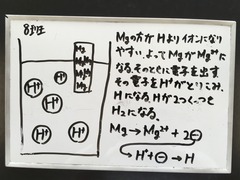 8班
Mg
Mg
Mg
Mg
H⁺
H⁺
H⁺
H⁺
H⁺
Mgの方がHよりイオンになり
やすい。よってMgがMg²⁺に
なる。そのときに電子を出す
その電子をH⁺がとりこみ、
Hになる。Hが2つくっつき
H₂になる。
Mg→Mg²⁺+2⊖
H⁺+⊖→H